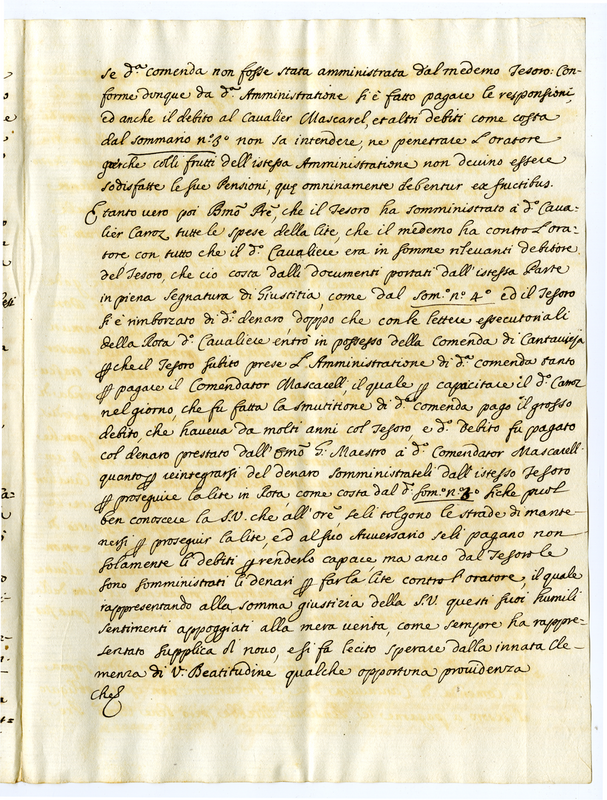 se d.ª comenda non fosse stata amministrata dal medemo Tesoro: Con-
forme dunque da d.ª Amministratione si è fatto pagare le responsioni,
ed anche il debito al Cavalier Mascarel, et altri debiti come costa
dal sommario n.º 3.º non sa intendere, ne penetrare l'oratore
perche colli frutti dell'istessa Amministratione non devino essere
sodisfatte le sue Pensioni, quę omninamente debentur ex fructibus.
E tanto vero poi Bmõ Prẽ, che il Tesoro ha somministrato à d.º Cava-
lier Carroz tutte le spese della lite, che il medemo ha contro l'ora-
tore con tutto che il d.º Cavaliere era in somme rilevanti debitore
del Tesoro, che cio costa dalli documenti portati dall'istessa Parte
in piena segnatura di Giustitia, come dal Som.º n.º 4.º ed il Tesoro
si è rimborzato di d.º denaro, doppo che con le lettere essecutoriali
della Rota d.º Cavaliere entrò in possesso della Comenda di Cantavieja
ꝑche il Tesoro subito prese l'Amministratione di d.ª comenda tanto
ꝑ pagare il Comendator Mascarell, il quale ꝑ capacitare il d.º Carroz
nel giorno, che fu fatta la smutitione di d.ª comenda pago il grosso
debito, che haveva da molti anni col Tesoro e d.º debito fu pagato
col denaro prestato dall' Emõ G. Maestro à d.º Comendator Mascarell.
quanto ꝑ reintegrarsi del denaro somministrateli dall'istesso Tesoro
ꝑ proseguire la lite in Rota, come costa dal d.º som.º n.º siche puol
ben conoscere la S.V. che all'orẽ se li tolgono le strade di mante-
nersi ꝑ proseguir la lite, ed al suo Avversario se li pagano non
solamente li debiti ꝑ renderlo capace, ma anco dal Tesoro le
sono somministrati li denari ꝑ far la lite contro l'oratore, il quale
rappresentando alla somma giustizia della S.V. questi suoi humili
sentimenti appoggiati alla mera verita, come sempre ha rappre-
sentato supplica di novo, e si fa lecito sperare dalla innata Cle-
menza di V. Beatitudine qualche opportuna providenza
Che